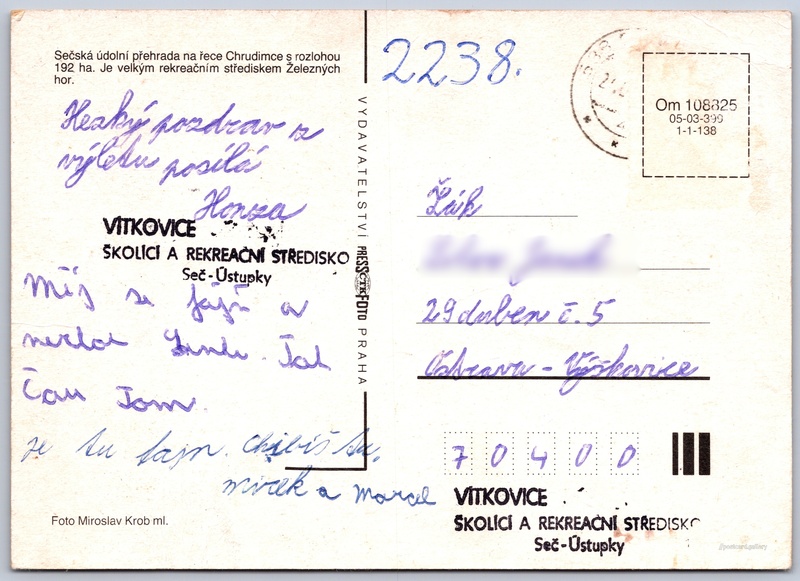 Sečská údolní přehrada na řece Chrudimce s rozlohou
192 ha. Je velkým rekreačním střediskem Železných
hor.
Hezký pozdrav z
výletu posílá
Honza
VÍTKOVICE
ŠKOLÍCÍ A REKREAČNÍ STŘEDISKO
Seč-Ústupky
Měj se fajn a
Čau Tom.
je tu fajn. chibíš tu.
Mirek a Marcel
Foto Miroslav Krob ml.
VYDAVATELSTVÍ PRESSFOTO PRAHA
ČTK
2238.
Om 108825
05-03-399
1-1-138
Žák
29 duben č. 5
Ostrava - Výškovice
70400
VÍTKOVICE
ŠKOLÍCÍ A REKREAČNÍ STŘEDISKO
Seč-Ústupky